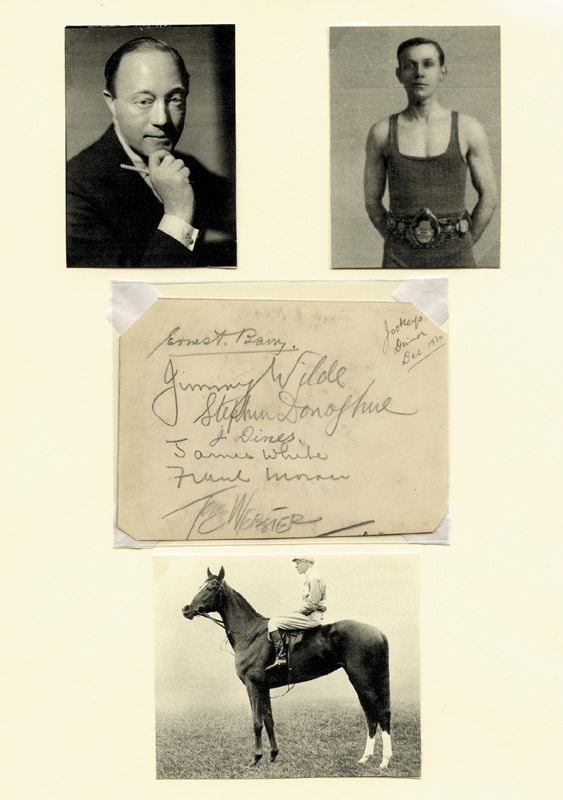 Ernest Barry.
Jockeys
Dinner
Dec 1920
Jimmy Wilde
Stephen Donoghue
J Dines.
James White
Frank Moran
Tom WEBSTER